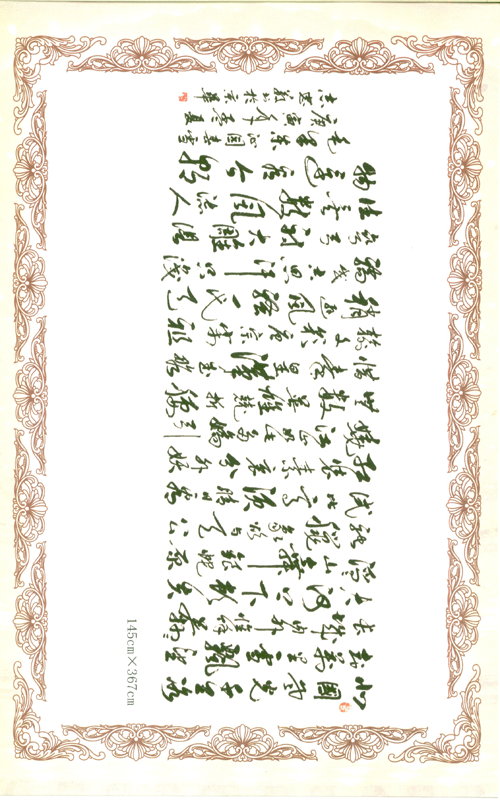 北国风光千里冰
封万里雪飘望长
城内外惟余莽莽
大河上下顿失滔
滔山舞银蛇原驰
蜡象欲与天公
试比高须晴日看
红装素裹分外妖
娆江山如此多娇引
无数英雄竞折腰
惜秦皇汉武略输
文采唐宗宋祖稍
逊风骚一代天
骄成吉思汗只识
弯弓射大雕俱
往矣数风流人
物还看今朝
毛泽东沁园春雪
145cm×367cm